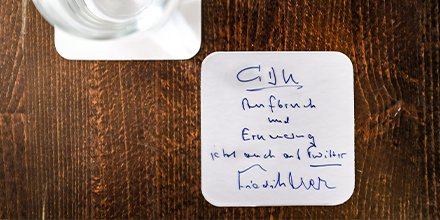 CDU
Aufbruch
und
Erneuerung
jetzt auch auf Twitter
Friedrich Merz